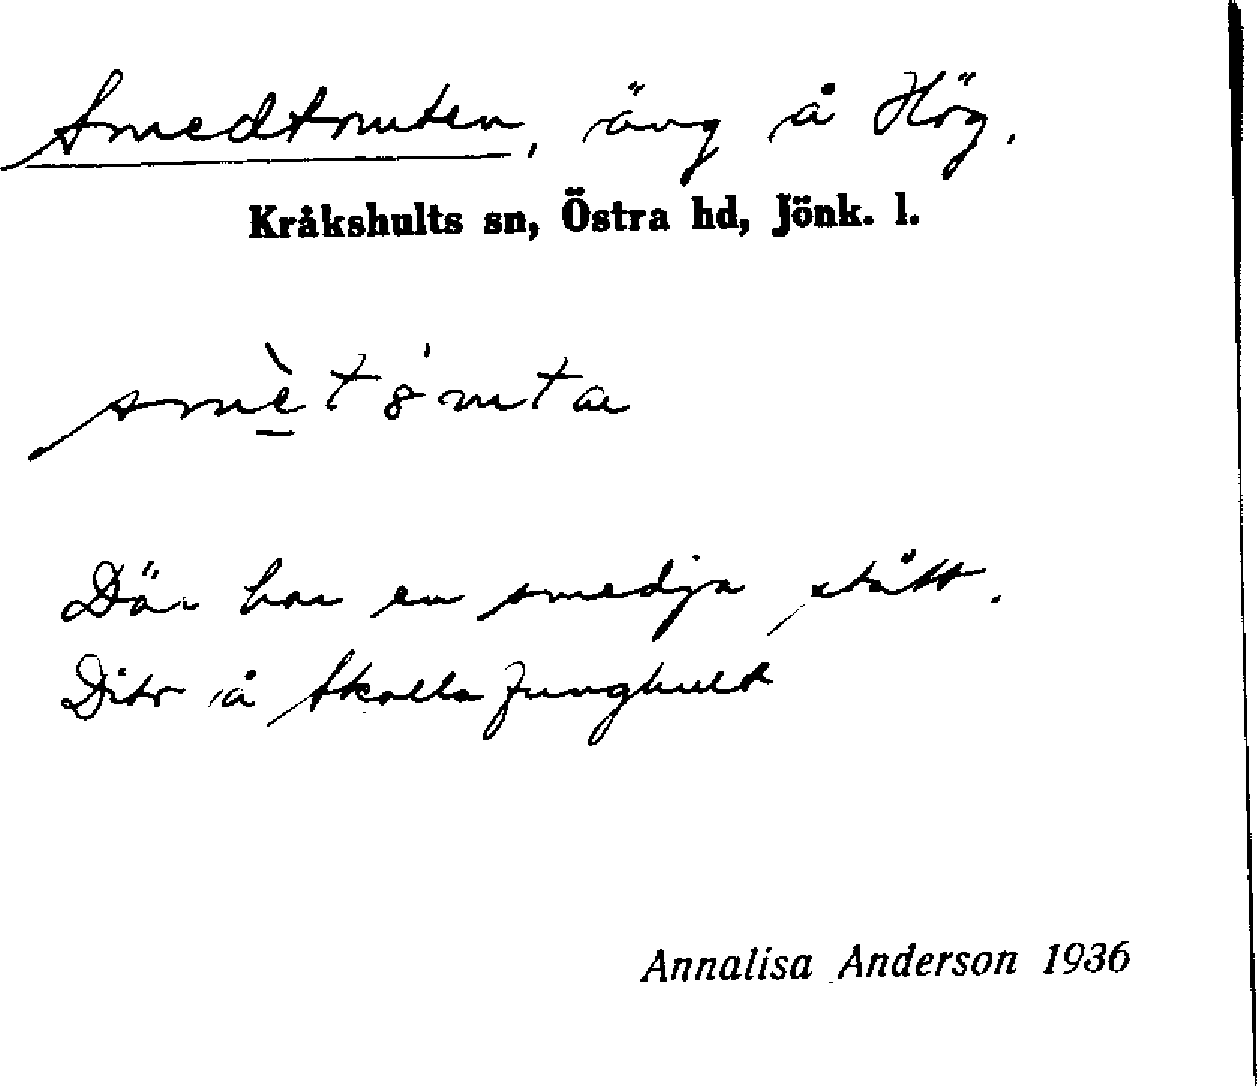 Smedtomten, äng å Hög.
Kråkshults sn, Östra hd, Jönk. l.
Där har en smedja stått.
Dito å Skälla Ljunghult
Annalisa Anderson 1936